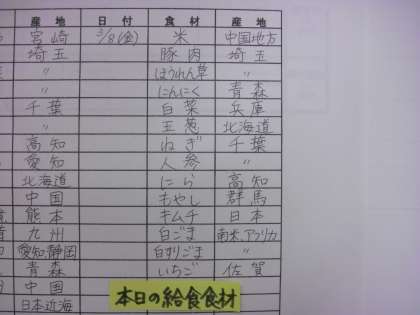 産地 日付 食材 産地
宮崎 3/8(金) 米 中国地方
埼玉 豚肉 埼玉
〃 ほうれん草 〃
〃 にんにく 青森
千葉 白菜 兵庫
〃 玉葱 北海道
高知 ねぎ 千葉
愛知 人参 〃
北海道 にら 高知
中国 もやし 群馬
熊本 キムチ 日本
九州 白ごま 南米、アフリカ
愛知、静岡 白すりごま 〃
青森 いちご 佐賀
中国
日本近海
本日の給食食材